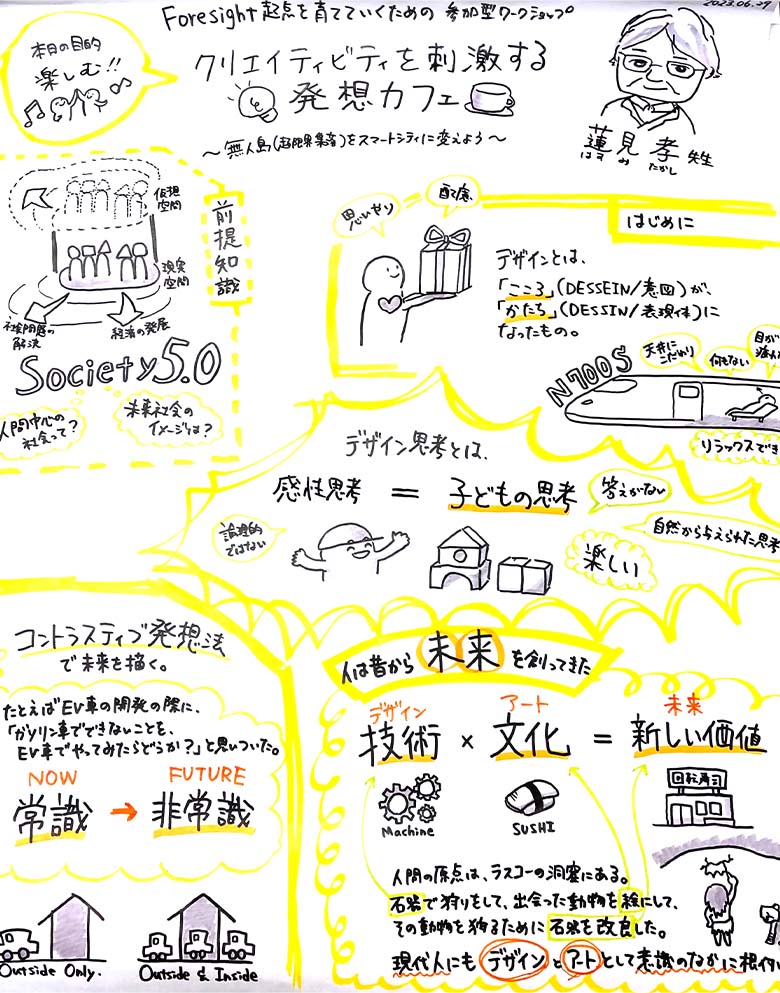 2023.06.29
Foresight 起点を育てていくための 参加型ワークショップ
本日の目的
楽しむ!!
クリエイティビティを刺激する
発想カフェ
〜無人島(超限界集落)をスマートシティに変えよう〜
蓮見 孝 先生
はす み たかし
前提知識
仮想
空間
現実
空間
社会問題の
解決
経済の発展
Society5.0
人間中心の
社会って?
未来社会の
イメージは?
はじめに
思いやり
配慮
デザインとは、
「こころ」(DESSEIN/意図)が、
「かたち」(DESSIN/表現体)に
なったもの。
N700S
天井に
こだわり
何もない
目が
リラックスでき
デザイン思考とは、
感性思考 = 子どもの思考
答えがない
論理的
ではない
自然から与えられた思考
楽しい
コントラスティブ発想法
で未来を描く。
たとえばEV車の開発の際に、
「ガソリン車でできないことを、
EV車でやってみたらどうか?」と思いついた。
NOW FUTURE
常識 → 非常識
Outside Only.
Outside & Inside
人は昔から 未来 を創ってきた
デザイン アート 未来
技術 × 文化 = 新しい価値
Machine
SUSHI
回転寿司
人間の原点は、ラスコーの洞窟にある。
石器で狩りをして、出会った動物を絵にして、
その動物を狩るために石器を改良した。
現代人にもデザインとアートとして意識のなかに根付い